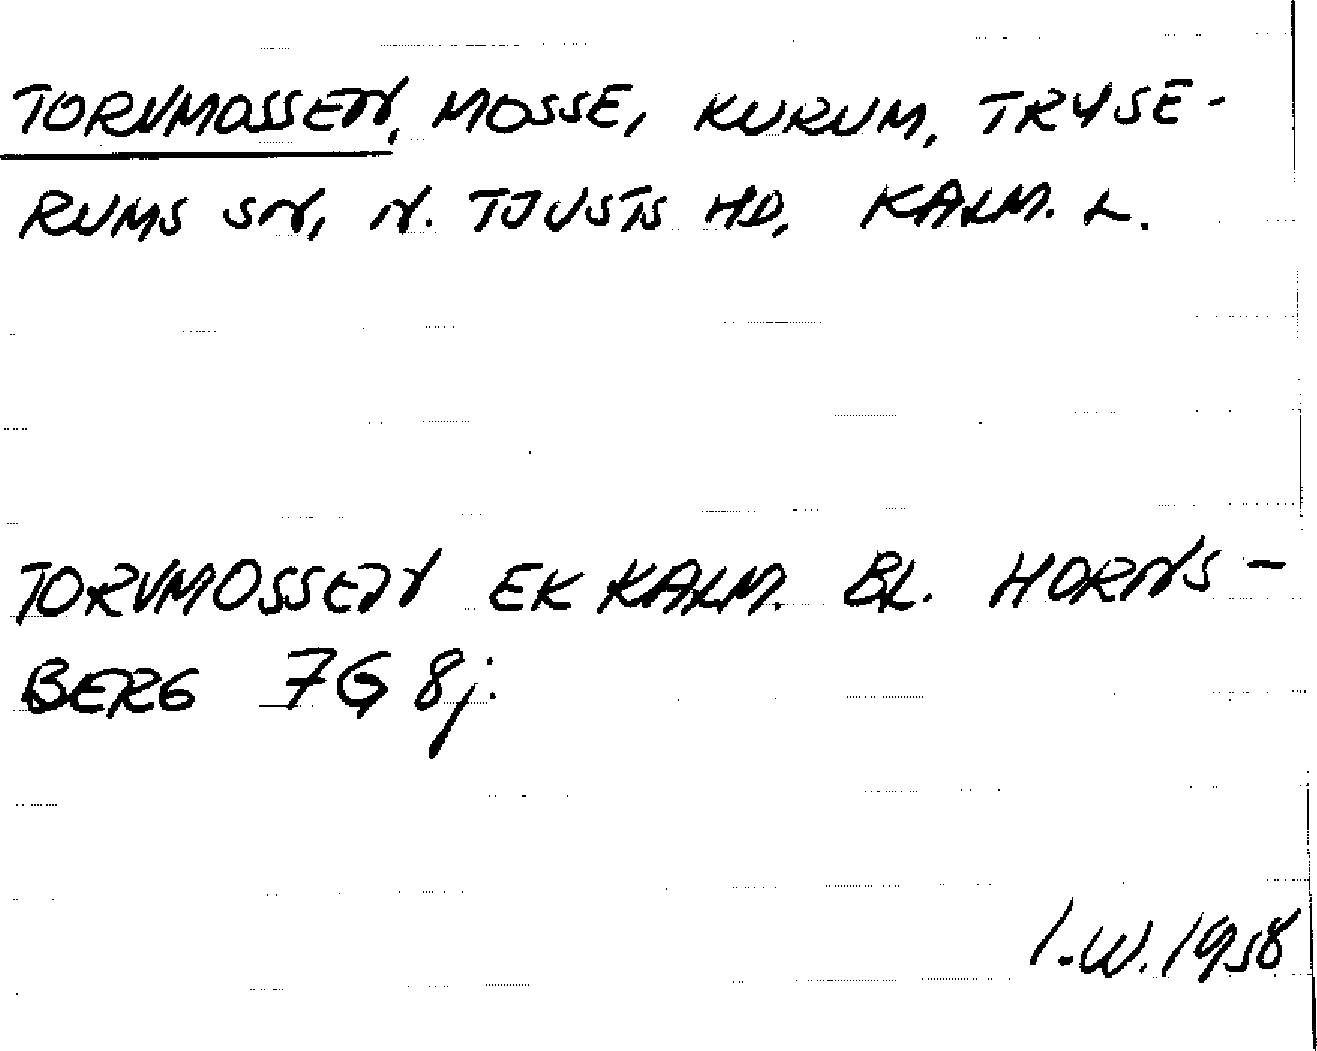 TORVMOSSEN, MOSSE, KURUM, TRYSE-
RUMS SN, N. TJUSTS HD, KALM. L.
TORVMOSSEN EK KALM. BL. HORNS-
BERG 7G 8j.
I.W. 1958